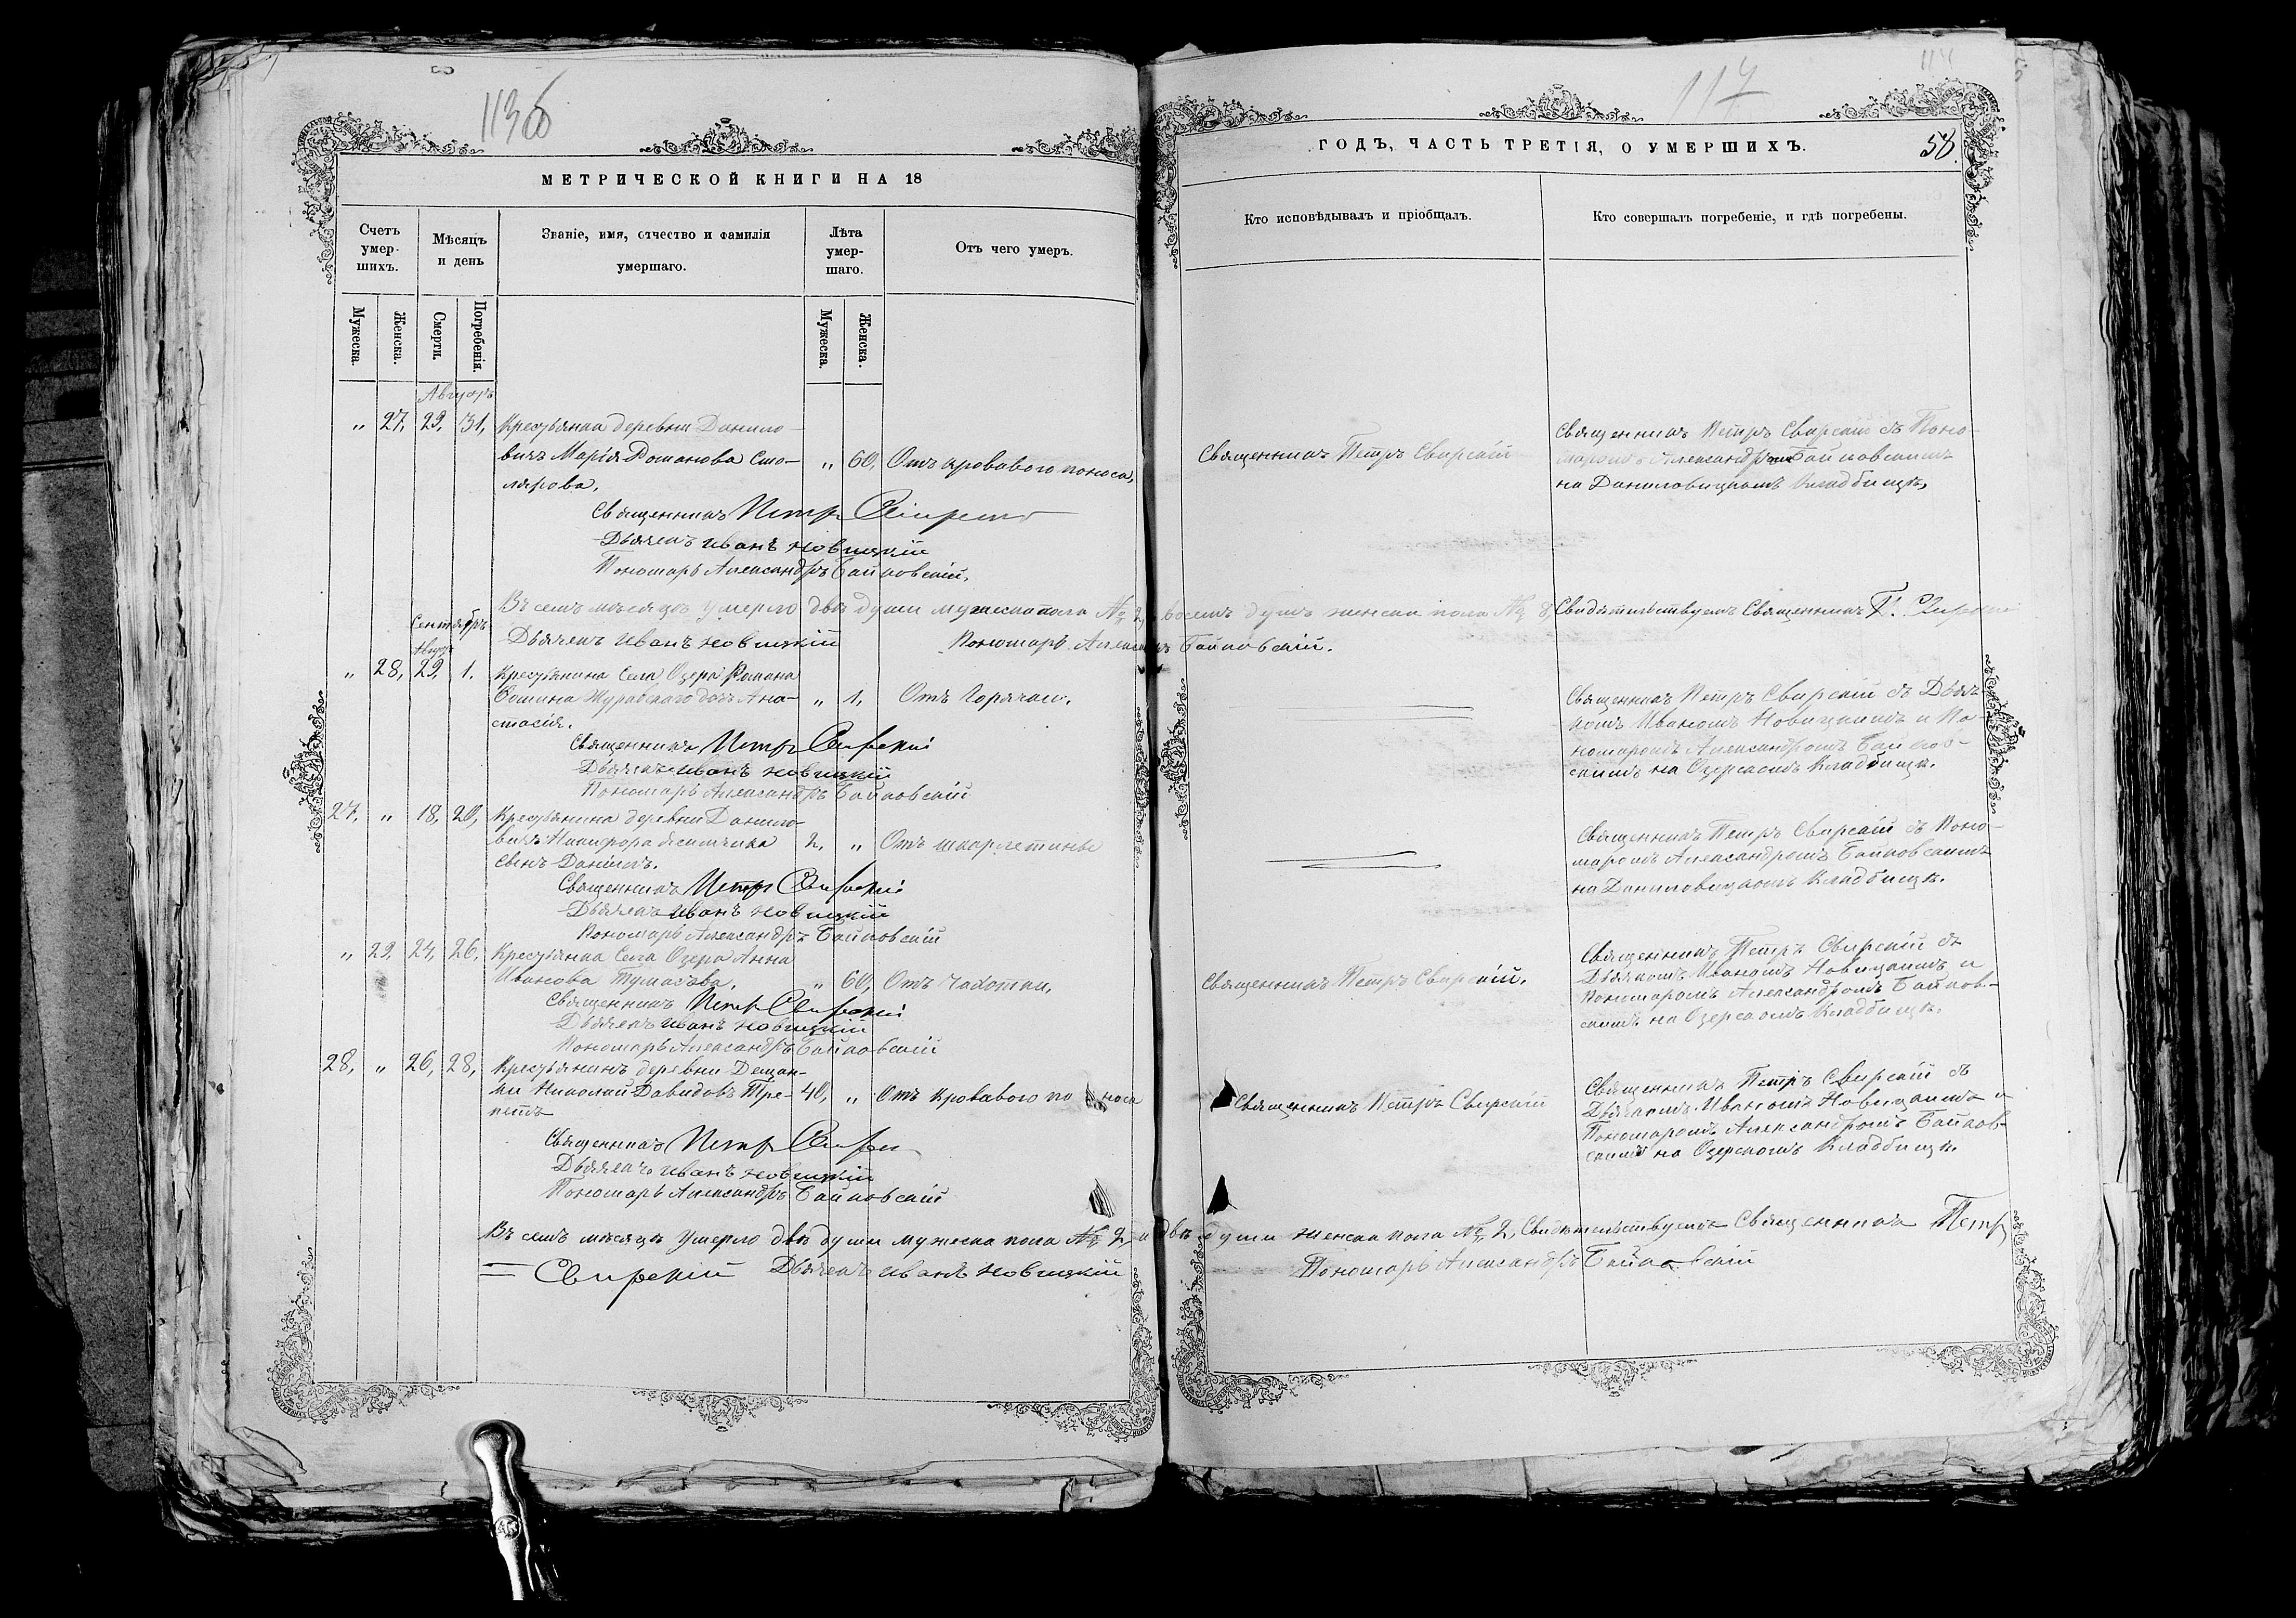 113б
МЕТРИЧЕСКОЙ КНИГИ НА 18
Счетъ умер- шихъ.
Мѣсяцъ и день
Званіе, имя, отчество и фамилія умершаго.
Лѣта умер- шаго.
Отъ чего умеръ.
Мужеска.
Женска.
Смерти.
Погребенія.
Мужеска.
Женска.
Августъ
„ 27, 29, 31, Крестьянка деревни Данило-
вичъ Марія Романова Сто- „ 60, Отъ кроваваго поноса,
лярова.
Священникъ Петръ Свирскій
Дьячекъ Иванъ Новицкій
Пономарь Александръ Байковскій.
Въ семъ мѣсяцѣ умерло двѣ души мужеска пола № 2, восемь душъ женска пола № 8, Свидѣтельствуемъ Священникъ П. Свирскій
Дьячекъ Иванъ Новицкій Пономарь Александръ Байковскій.
Сентябрь
Августъ
„ 28, 29, 1. Крестьянина Села Озера Романа
Фомина Журавскаго дочь Ана- „ 1, Отъ Горячки.
стасія.
Священникъ Петръ Свирскій
Дьячекъ Иванъ Новицкій
Пономарь Александръ Байковскій
27, „ 18, 20, Крестьянина деревни Данило-
вичъ Никифора 2, „ Отъ шкарлетины
сынъ Даніилъ.
Священникъ Петръ Свирскій
Дьячекъ Иванъ Новицкій
Пономарь Александръ Байковскій
„ 29, 24, 26, Крестьянка Села Озера Анна
Иванова Тумасова, „ 60, Отъ Чахотки,
Священникъ Петръ Свирскій
Дьячекъ Иванъ Новицкій
Пономарь Александръ Байковскій
28, „ 26, 28, Крестьянинъ деревни Дещан-
ки Николай Давидовъ Тре- 40, „ Отъ Кроваваго поноса
петъ
Священникъ Петръ Свирскій
Дьячекъ Иванъ Новицкій
Пономарь Александръ Байковскій
Въ семъ мѣсяцѣ умерло двѣ души мужеска пола № 2 и двѣ души женска пола № 2, Свидѣтельствуемъ Священникъ Петръ
Свирскій Дьячекъ Иванъ Новицкій Пономарь Александръ Байковскій
117
114
ГОДЪ, ЧАСТЬ ТРЕТІЯ, О УМЕРШИХЪ.
58.
Кто исповѣдывалъ и пріобщалъ.
Кто совершалъ погребеніе, и гдѣ погребены.
Священникъ Петръ Свирскій
Священникъ Петръ Свирскій съ Поно-
маромъ Александромъ Байковскимъ
на Даниловицкомъ Кладбищѣ,
Священникъ Петръ Свирскій съ Дьяч-
комъ Иваномъ Новицкимъ и По-
номаромъ Александромъ Байков-
скимъ на Озерскомъ Кладбищѣ.
Священникъ Петръ Свирскій съ Поно-
маромъ Александромъ Байковскимъ
на Даниловицкомъ Кладбищѣ.
Священникъ Петръ Свирскій.
Священникъ Петръ Свирскій съ
Дьячкомъ Иваномъ Новицкимъ и
Пономаромъ Александромъ Байков-
скимъ на Озерскомъ Кладбищѣ.
Священникъ Петръ Свирскій
Священникъ Петръ Свирскій съ
Дьячкомъ Иваномъ Новицкимъ и
Пономаромъ Александромъ Байков-
скимъ на Озерскомъ Кладбищѣ.